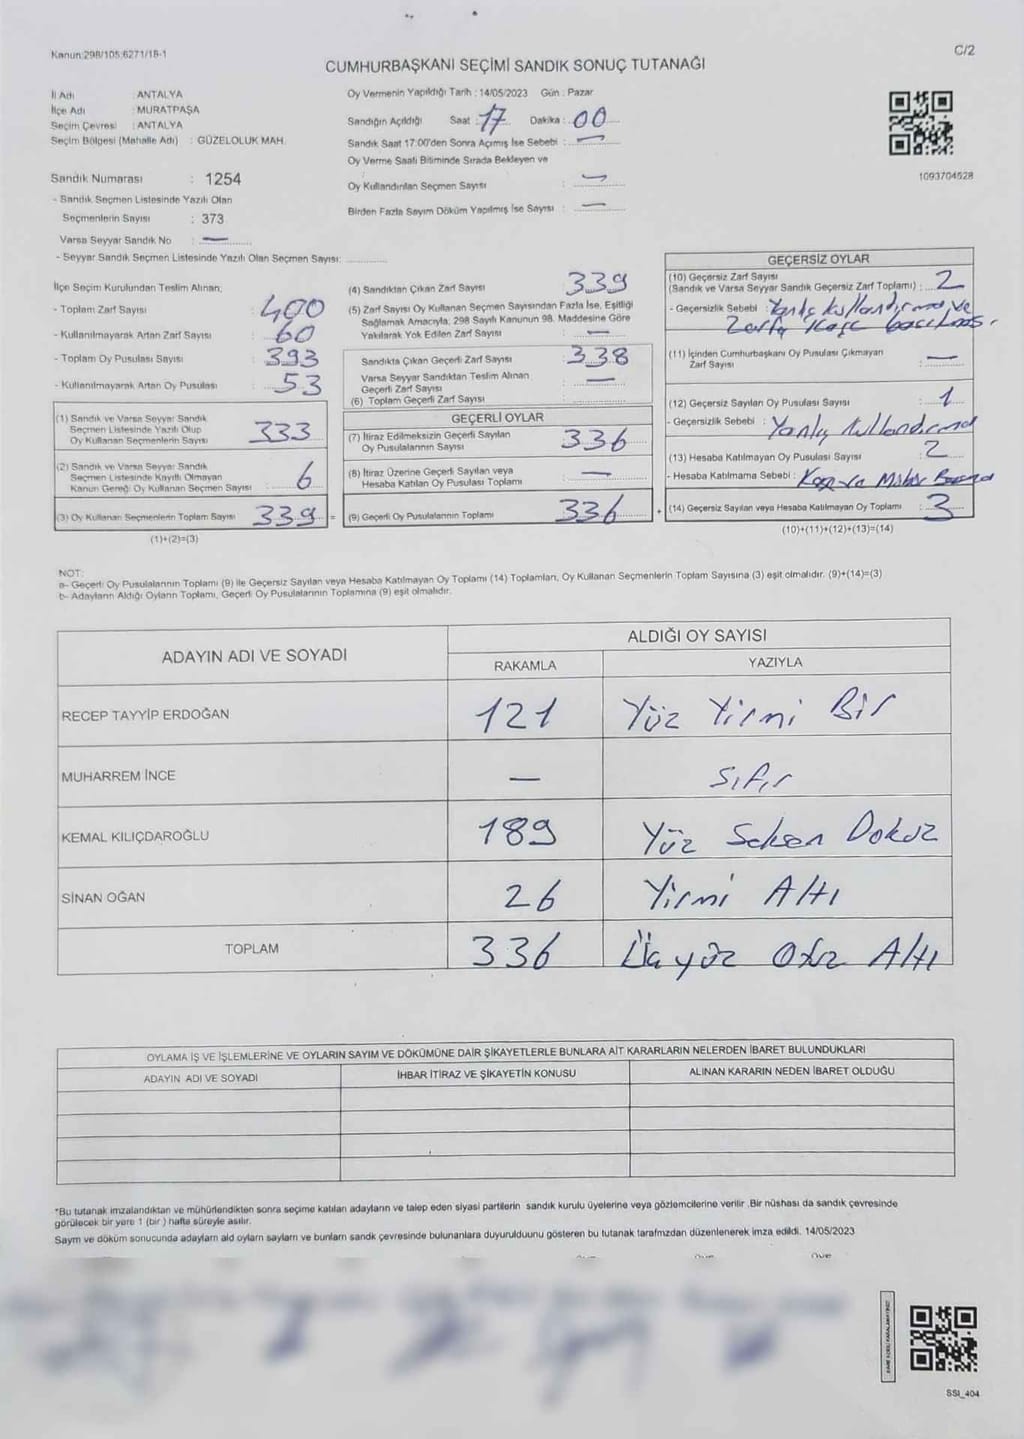 Kanun:298/105;6271/18-1
C/2
CUMHURBAŞKANI SEÇİMİ SANDIK SONUÇ TUTANAĞI
İl Adı : ANTALYA
İlçe Adı : MURATPAŞA
Seçim Çevresi : ANTALYA
Seçim Bölgesi (Mahalle Adı) : GÜZELOLUK MAH.
Sandık Numarası : 1254
- Sandık Seçmen Listesinde Yazılı Olan
Seçmenlerin Sayısı : 373
Varsa Seyyar Sandık No : —
- Seyyar Sandık Seçmen Listesinde Yazılı Olan Seçmen Sayısı:
Oy Vermenin Yapıldığı Tarih : 14/05/2023 Gün : Pazar
Sandığın Açıldığı Saat : 17 Dakika : 00
Sandık Saat 17:00'den Sonra Açılmış İse Sebebi : —
Oy Verme Saati Bitiminde Sırada Bekleyen ve
Oy Kullandırılan Seçmen Sayısı : —
Birden Fazla Sayım Döküm Yapılmış İse Sayısı : —
1093704528
İlçe Seçim Kurulundan Teslim Alınan;
- Toplam Zarf Sayısı : 400
- Kullanılmayarak Artan Zarf Sayısı : 60
- Toplam Oy Pusulası Sayısı : 393
- Kullanılmayarak Artan Oy Pusulası : 53
(1) Sandık ve Varsa Seyyar Sandık
Seçmen Listesinde Yazılı Olup
Oy Kullanan Seçmenlerin Sayısı : 333
(2) Sandık ve Varsa Seyyar Sandık
Seçmen Listesinde Kayıtlı Olmayan
Kanun Gereği Oy Kullanan Seçmen Sayısı : 6
(3) Oy Kullanan Seçmenlerin Toplam Sayısı : 339 =
(1)+(2)=(3)
(4) Sandıktan Çıkan Zarf Sayısı : 339
(5) Zarf Sayısı Oy Kullanan Seçmen Sayısından Fazla İse, Eşitliği
Sağlamak Amacıyla; 298 Sayılı Kanunun 98. Maddesine Göre
Yakılarak Yok Edilen Zarf Sayısı : —
Sandıkta Çıkan Geçerli Zarf Sayısı : 338
Varsa Seyyar Sandıktan Teslim Alınan
Geçerli Zarf Sayısı : —
(6) Toplam Geçerli Zarf Sayısı
GEÇERLİ OYLAR
(7) İtiraz Edilmeksizin Geçerli Sayılan
Oy Pusulalarının Sayısı : 336
(8) İtiraz Üzerine Geçerli Sayılan veya
Hesaba Katılan Oy Pusulası Toplamı : —
(9) Geçerli Oy Pusulalarının Toplamı : 336 +
GEÇERSİZ OYLAR
(10) Geçersiz Zarf Sayısı
(Sandık ve Varsa Seyyar Sandık Geçersiz Zarf Toplamı) : 2
- Geçersizlik Sebebi : Yanlış kullandırma ve
Zarfa Kaşe
(11) İçinden Cumhurbaşkanı Oy Pusulası Çıkmayan
Zarf Sayısı : —
(12) Geçersiz Sayılan Oy Pusulası Sayısı : 1
- Geçersizlik Sebebi : Yanlış kullandırma
(13) Hesaba Katılmayan Oy Pusulası Sayısı : 2
- Hesaba Katılmama Sebebi :
(14) Geçersiz Sayılan veya Hesaba Katılmayan Oy Toplamı : 3
(10)+(11)+(12)+(13)=(14)
NOT:
a- Geçerli Oy Pusulalarının Toplamı (9) ile Geçersiz Sayılan veya Hesaba Katılmayan Oy Toplamı (14) Toplamları, Oy Kullanan Seçmenlerin Toplam Sayısına (3) eşit olmalıdır. (9)+(14)=(3)
b- Adayların Aldığı Oyların Toplamı, Geçerli Oy Pusulalarının Toplamına (9) eşit olmalıdır.
ADAYIN ADI VE SOYADI
ALDIĞI OY SAYISI
RAKAMLA YAZIYLA
RECEP TAYYİP ERDOĞAN 121 Yüz Yirmi Bir
MUHARREM İNCE — Sıfır
KEMAL KILIÇDAROĞLU 189 Yüz Seksen Dokuz
SİNAN OĞAN 26 Yirmi Altı
TOPLAM 336 Üçyüz Otuz Altı
OYLAMA İŞ VE İŞLEMLERİNE VE OYLARIN SAYIM VE DÖKÜMÜNE DAİR ŞİKAYETLERLE BUNLARA AİT KARARLARIN NELERDEN İBARET BULUNDUKLARI
ADAYIN ADI VE SOYADI İHBAR İTİRAZ VE ŞİKAYETİN KONUSU ALINAN KARARIN NEDEN İBARET OLDUĞU
*Bu tutanak imzalandıktan ve mühürlendikten sonra seçime katılan adayların ve talep eden siyasi partilerin sandık kurulu üyelerine veya gözlemcilerine verilir .Bir nüshası da sandık çevresinde
görülecek bir yere 1 (bir ) hafta süreyle asılır.
Sayım ve döküm sonucunda adayların ald oyların sayıları ve bunların sandık çevresinde bulunanlara duyurulduunu gösteren bu tutanak tarafmzdan düzenlenerek imza edildi. 14/05/2023
SSI_404